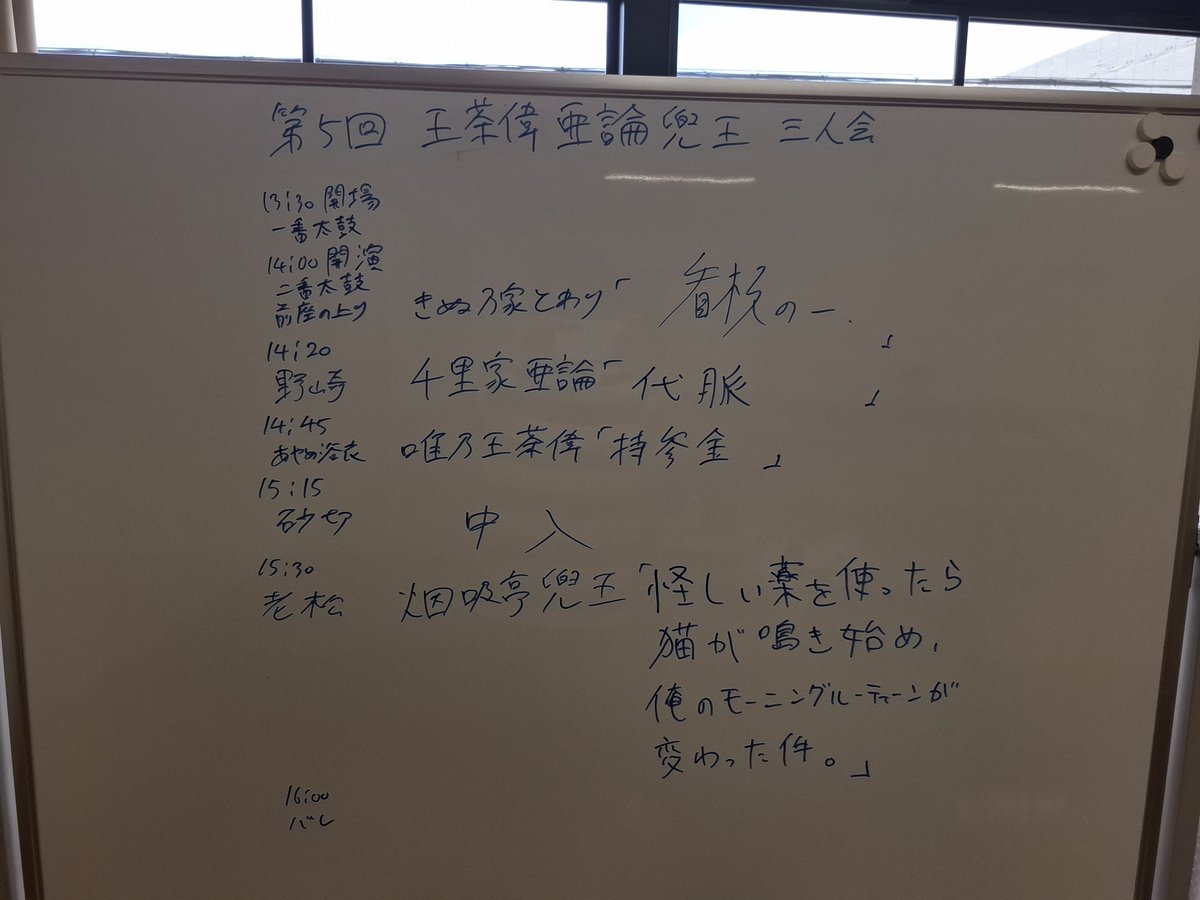 第5回 王茶偉 亜論 兜王 三人会
13:30 開場
一番太鼓
14:00 開演
二番太鼓
前座の上り きぬ乃家とわり「看板の一.」
14:20
野崎 千里家亜論「代脈」
14:45
あやめ浴衣 唯乃王茶偉「持参金」
15:15
砂切 中入
15:30
老松 烟吸亭兜王「怪しい薬を使ったら
猫が鳴き始め、
俺のモーニングルーティーンが
変わった件。」
16:00
バレ